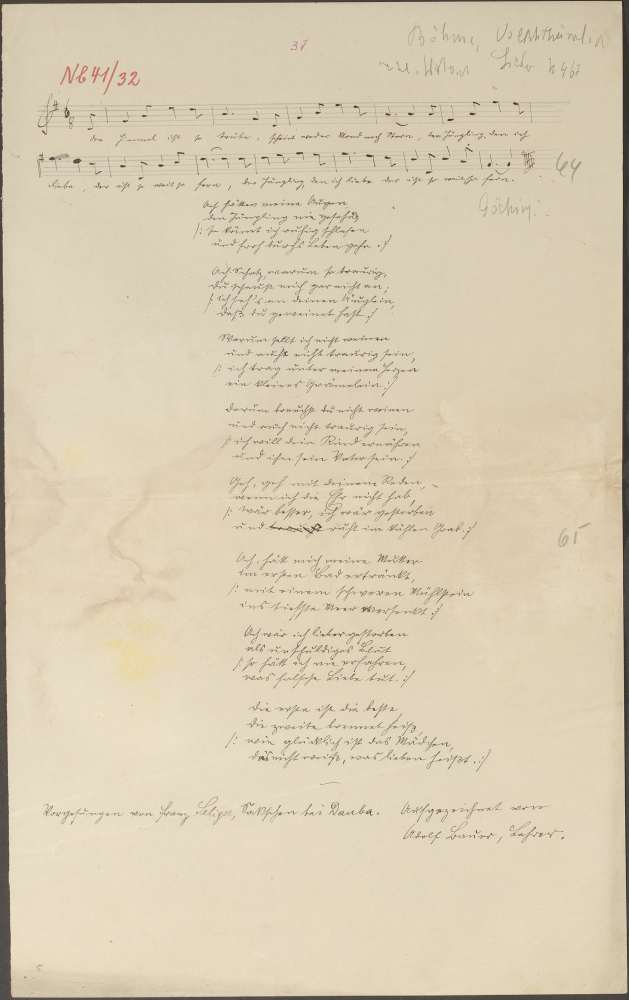 38
Böhme, Volkstüml.
Lieder N 461
NB 41/32
der Himmel ist so trübe, scheint weder Mond noch Stern, den Jüngling, den ich
liebe, der ist so weit so fern, den Jüngling, den ich liebe der ist so weit so fern.
64
Ach hätten meine Augen
den Jüngling nie gesehn
/: So könnt ich ruhig schlafen
und froh durchs Leben gehn. :/
Ach Schatz, warum so traurig,
du schaust mich gar nicht an;
/: Ich seh's an deinen Äuglein,
daß du geweinet hast. :/
Warum sollt ich nicht weinen
und auch nicht traurig sein,
/: ich trag unter meinem Herzen
ein kleines :/
Darum brauchst du nicht weinen
und auch nicht traurig sein,
/: ich will dein Kind ernähren
und ihm sein Vater sein. :/
Geh, geh mit deinem Reden,
wenn ich die Ehr nicht hab,
/: Wär besser, ich wär gestorben
und ruht im kühlen Grab. :/
65
Ach, hätt mich meine Mutter
im ersten Bad ertränkt,
/: mit einem schweren Mühlstein
ins tiefste Meer versenkt. :/
Ach wär ich lieber gestorben
als unschuldiges Blut
/: so hätt ich nie erfahren,
was falsche Liebe tut. :/
Die erste ist die beste
die zweite brennet heiß
/: wie glücklich ist das Mädchen,
das nicht weiß, was lieben heißt. :/
Vorgesungen von Franz bei Dauba. Aufgezeichnet von
Adolf Bauer, Lehrer.